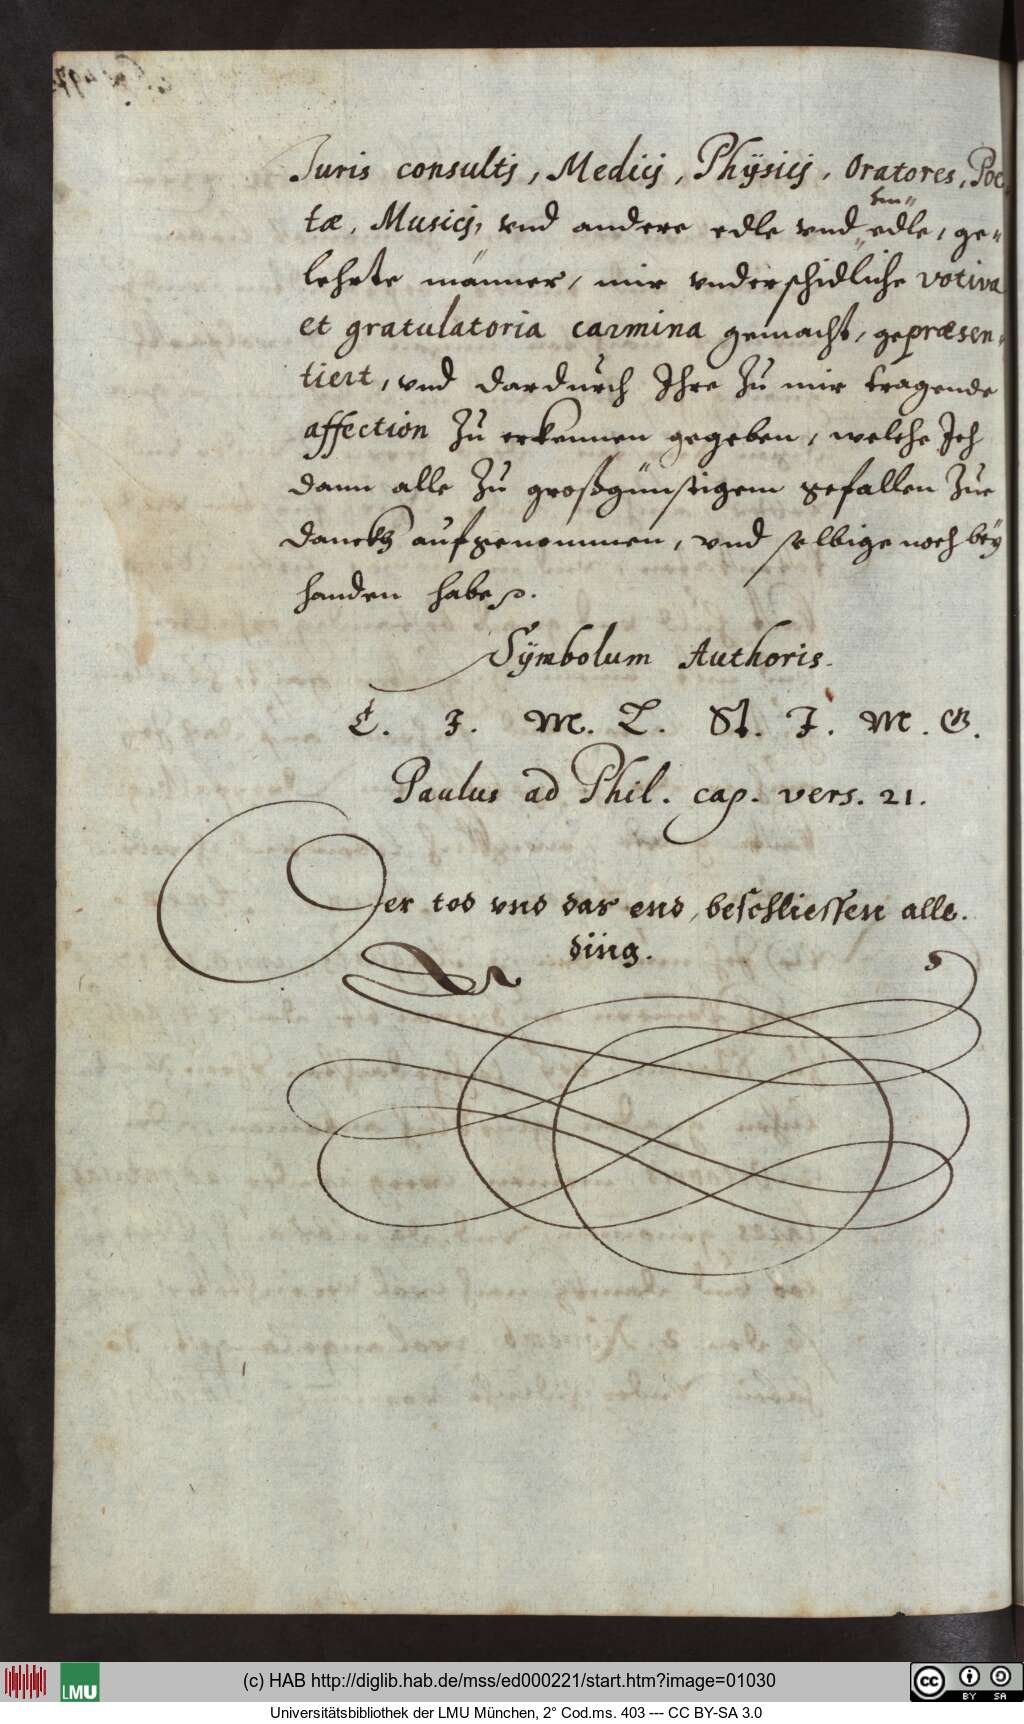 Juris consultj, Medicj, Physicj, Oratores, Poe
tæ, Musicj, vnd andere edle vnd vn= edle, ge=
lehrte männer, mir vnderschidliche votiva
et gratulatoria carmina gemacht, gepræsen=
tiert, vnd dardurch Ihre zu mir tragende
affection zu erkennen gegeben, welche Ich
dann alle zu großgünstigem gefallen zue
danckh aufgenommen, vnd selbige noch beÿ
handen habe.
Sÿmbolum Authoris.
C. I. M. L. St. I. M. G.
Paulus ad Phil. cap. vers. 21.
Der tod vnd das end, beschliessen alle
ding.
(c) HAB http://diglib.hab.de/mss/ed000221/start.htm?image=01030
LMU
BY SA
Universitätsbibliothek der LMU München, 2° Cod.ms. 403 --- CC BY-SA 3.0